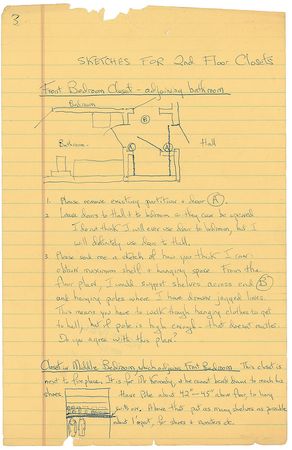 3
SKETCHES FOR 2nd Floor Closets
Front Bedroom Closet - adjoining bathroom
Bedroom
B
Bathroom
Hall
A
A
1. Please remove existing partitions + door A.
2. Leave doors to Hall + to bedroom so they can be opened
I do not think I will ever use door to bedroom, but I
will definitely use door to Hall.
3. Please send me a sketch of how you think I can
obtain maximum shelf + hanging space. From the
floor plan, I would suggest shelves across end B
and hanging poles where I have drawn jagged lines.
This means you have to walk through hanging clothes to get
to hall, but if pole is high enough - that doesn't matter.
Do you agree with this plan?
Closet in Middle Bedroom which adjoins Front Bedroom. This closet is
next to fireplace. It is for Mr Kennedy, + he cannot bend down to reach his
shoes.
Have Pole about 42" - 45" above floor, to hang
suits on. Above that put as many shelves as possible
about 1' apart, for shoes + sweaters etc.